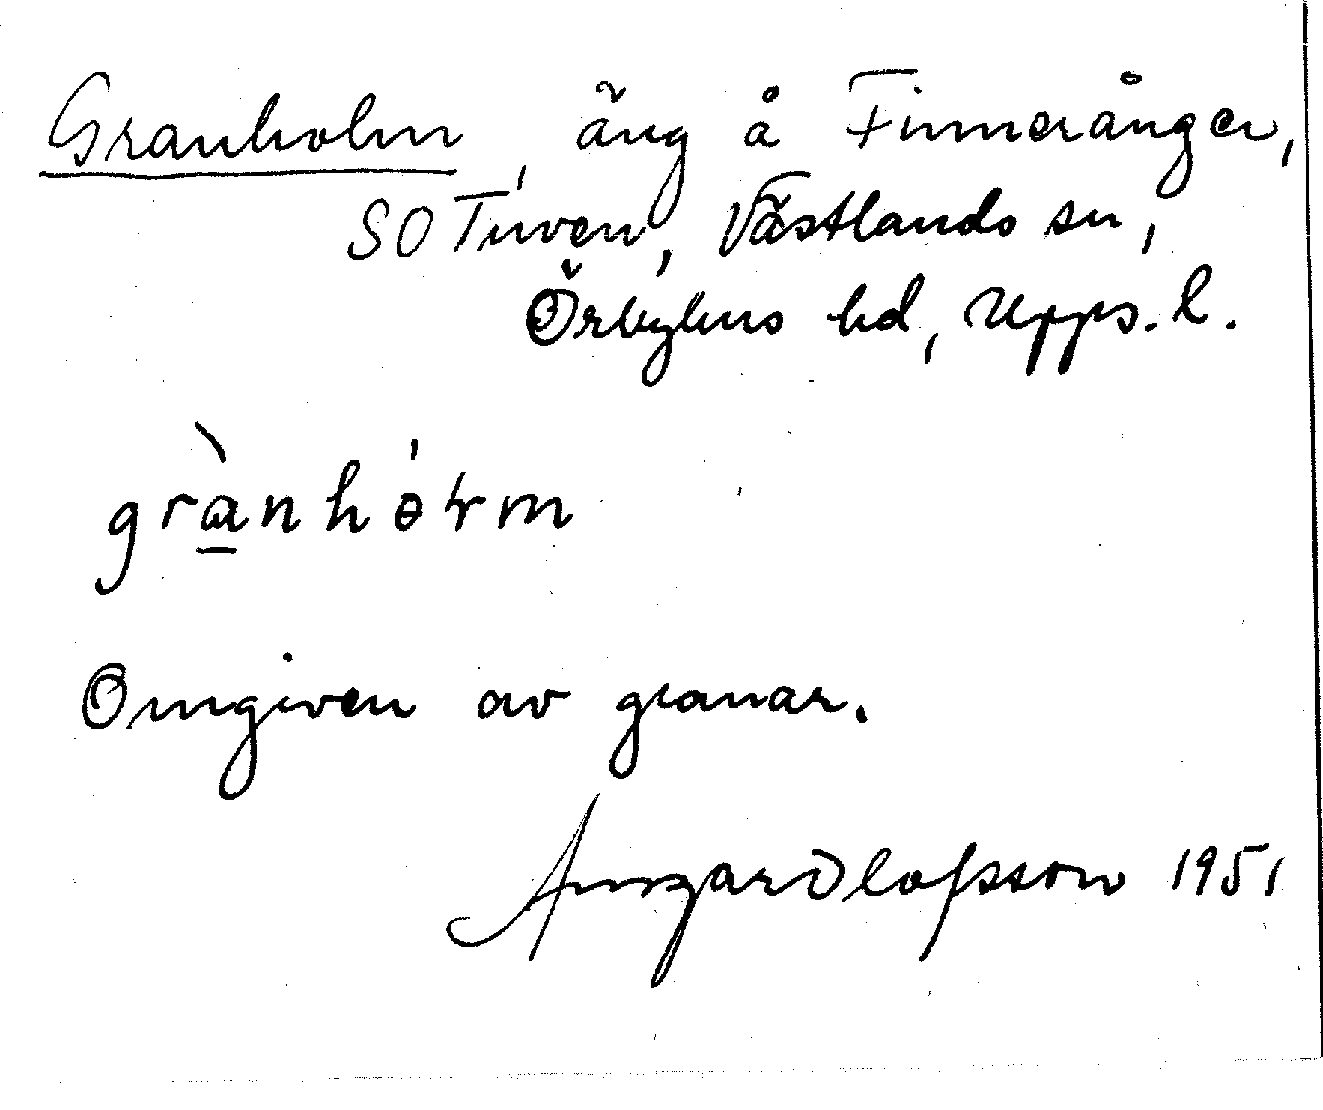 Granholm, äng å Finneränger,
SO Tuven, Västlands sn,
Örbyhus hd, Upps. l.
grànhólm
Omgiven av granar.
Ansgar Olofsson 1951